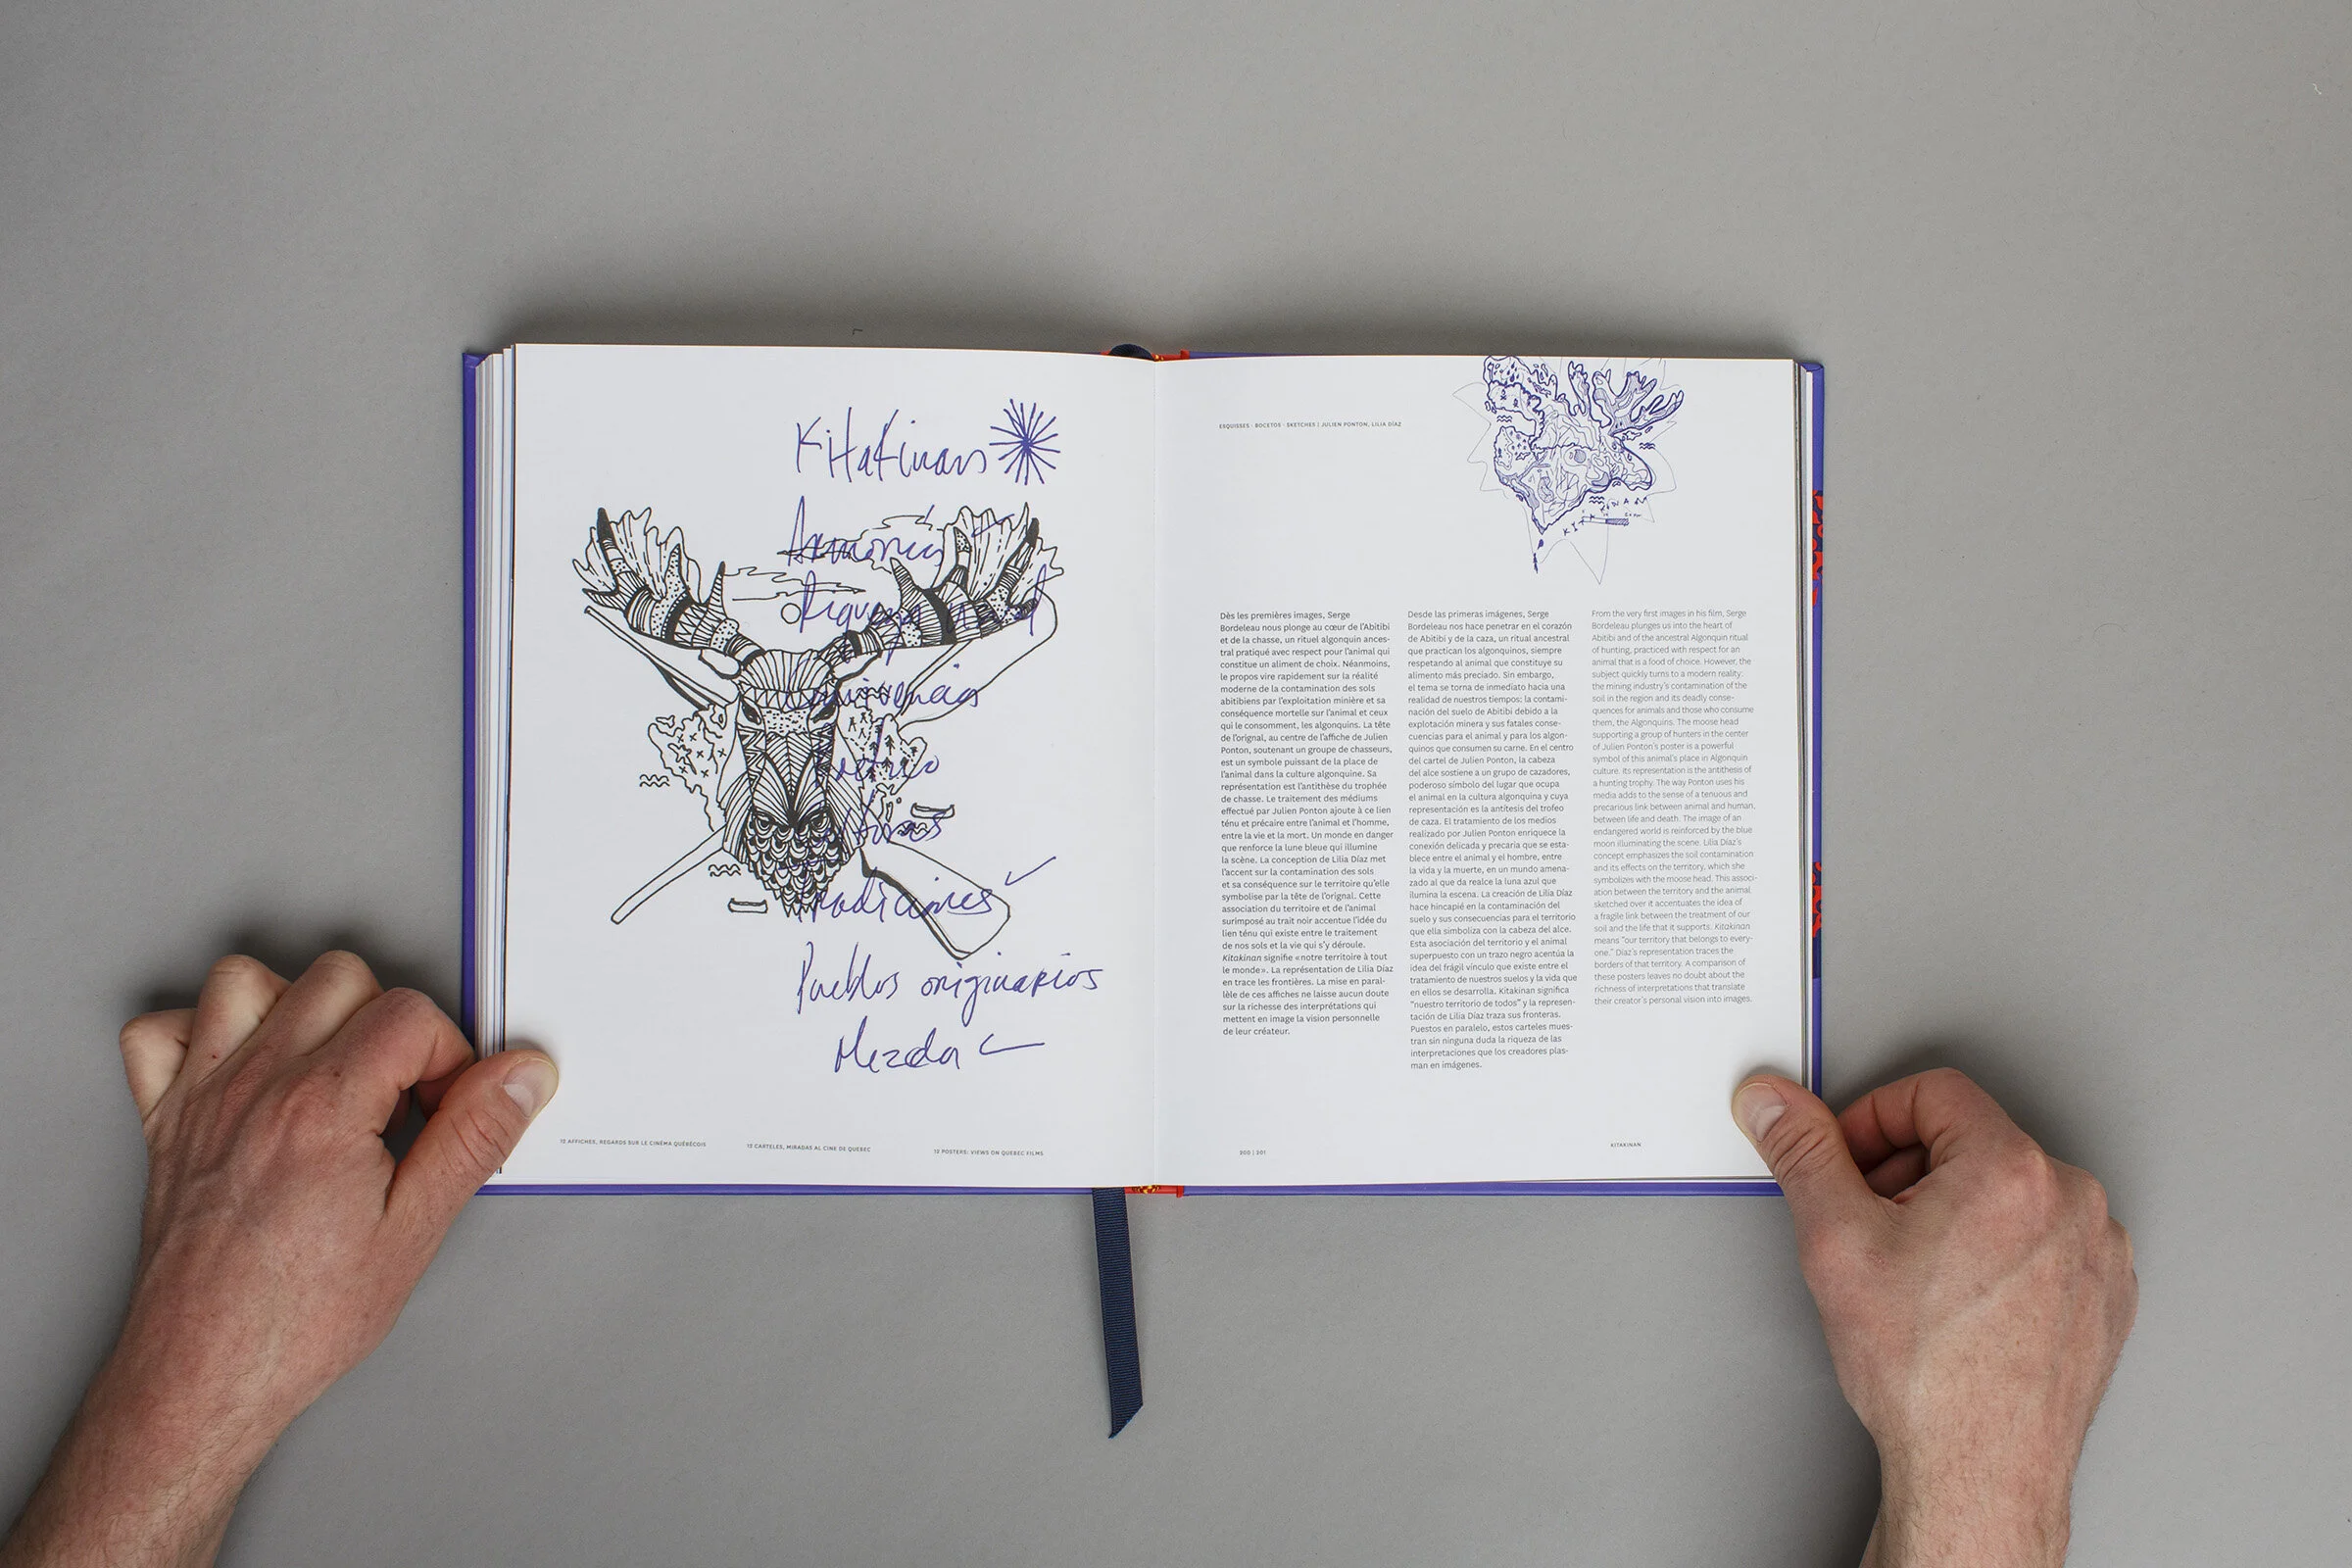 KitaKinan
Armonía
Riqueza
Convivencia
Tradiciones
Pueblos originarios
Mezcla
12 AFFICHES, REGARDS SUR LE CINÉMA QUÉBÉCOIS
12 CARTELES, MIRADAS AL CINE DE QUEBEC
12 POSTERS: VIEWS ON QUEBEC FILMS
ESQUISSES · BOCETOS · SKETCHES | JULIEN PONTON, LILIA DÍAZ
KITAKINAN
Dès les premières images, Serge
Bordeleau nous plonge au cœur de l'Abitibi
et de la chasse, un rituel algonquin ances-
tral pratiqué avec respect pour l'animal qui
constitue un aliment de choix. Néanmoins,
le propos vire rapidement sur la réalité
moderne de la contamination des sols
abitibiens par l'exploitation minière et sa
conséquence mortelle sur l'animal et ceux
qui le consomment, les algonquins. La tête
de l'orignal, au centre de l'affiche de Julien
Ponton, soutenant un groupe de chasseurs,
est un symbole puissant de la place de
l'animal dans la culture algonquine. Sa
représentation est l'antithèse du trophée
de chasse. Le traitement des médiums
effectué par Julien Ponton ajoute à ce lien
ténu et précaire entre l'animal et l'homme,
entre la vie et la mort. Un monde en danger
que renforce la lune bleue qui illumine
la scène. La conception de Lilia Díaz met
l'accent sur la contamination des sols
et sa conséquence sur le territoire qu'elle
symbolise par la tête de l'orignal. Cette
association du territoire et de l'animal
surimposé au trait noir accentue l'idée du
lien ténu qui existe entre le traitement
de nos sols et la vie qui s'y déroule.
Kitakinan signifie «notre territoire à tout
le monde». La représentation de Lilia Díaz
en trace les frontières. La mise en paral-
lèle de ces affiches ne laisse aucun doute
sur la richesse des interprétations qui
mettent en image la vision personnelle
de leur créateur.
Desde las primeras imágenes, Serge
Bordeleau nos hace penetrar en el corazón
de Abitibi y de la caza, un ritual ancestral
que practican los algonquinos, siempre
respetando al animal que constituye su
alimento más preciado. Sin embargo,
el tema se torna de inmediato hacia una
realidad de nuestros tiempos: la contami-
nación del suelo de Abitibi debido a la
explotación minera y sus fatales conse-
cuencias para el animal y para los algon-
quinos que consumen su carne. En el centro
del cartel de Julien Ponton, la cabeza
del alce sostiene a un grupo de cazadores,
poderoso símbolo del lugar que ocupa
el animal en la cultura algonquina y cuya
representación es la antítesis del trofeo
de caza. El tratamiento de los medios
realizado por Julien Ponton enriquece la
conexión delicada y precaria que se esta-
blece entre el animal y el hombre, entre
la vida y la muerte, en un mundo amena-
zado al que da realce la luna azul que
ilumina la escena. La creación de Lilia Díaz
hace hincapié en la contaminación del
suelo y sus consecuencias para el territorio
que ella simboliza con la cabeza del alce.
Esta asociación del territorio y el animal
superpuesto con un trazo negro acentúa la
idea del frágil vínculo que existe entre el
tratamiento de nuestros suelos y la vida que
en ellos se desarrolla. Kitakinan significa
"nuestro territorio de todos" y la represen-
tación de Lilia Díaz traza sus fronteras.
Puestos en paralelo, estos carteles mues-
tran sin ninguna duda la riqueza de las
interpretaciones que los creadores plas-
man en imágenes.
From the very first images in his film, Serge
Bordeleau plunges us into the heart of
Abitibi and of the ancestral Algonquin ritual
of hunting, practiced with respect for an
animal that is a food of choice. However, the
subject quickly turns to a modern reality:
the mining industry's contamination of the
soil in the region and its deadly conse-
quences for animals and those who consume
them, the Algonquins. The moose head
supporting a group of hunters in the center
of Julien Ponton's poster is a powerful
symbol of this animal's place in Algonquin
culture. Its representation is the antithesis of
a hunting trophy. The way Ponton uses his
media adds to the sense of a tenuous and
precarious link between animal and human,
between life and death. The image of an
endangered world is reinforced by the blue
moon illuminating the scene. Lilia Díaz's
concept emphasizes the soil contamination
and its effects on the territory, which she
symbolizes with the moose head. This associ-
ation between the territory and the animal
sketched over it accentuates the idea of
a fragile link between the treatment of our
soil and the life that it supports. Kitakinan
means "our territory that belongs to every-
one." Díaz's representation traces the
borders of that territory. A comparison of
these posters leaves no doubt about the
richness of interpretations that translate
their creator's personal vision into images.
200 | 201
KITAKINAN